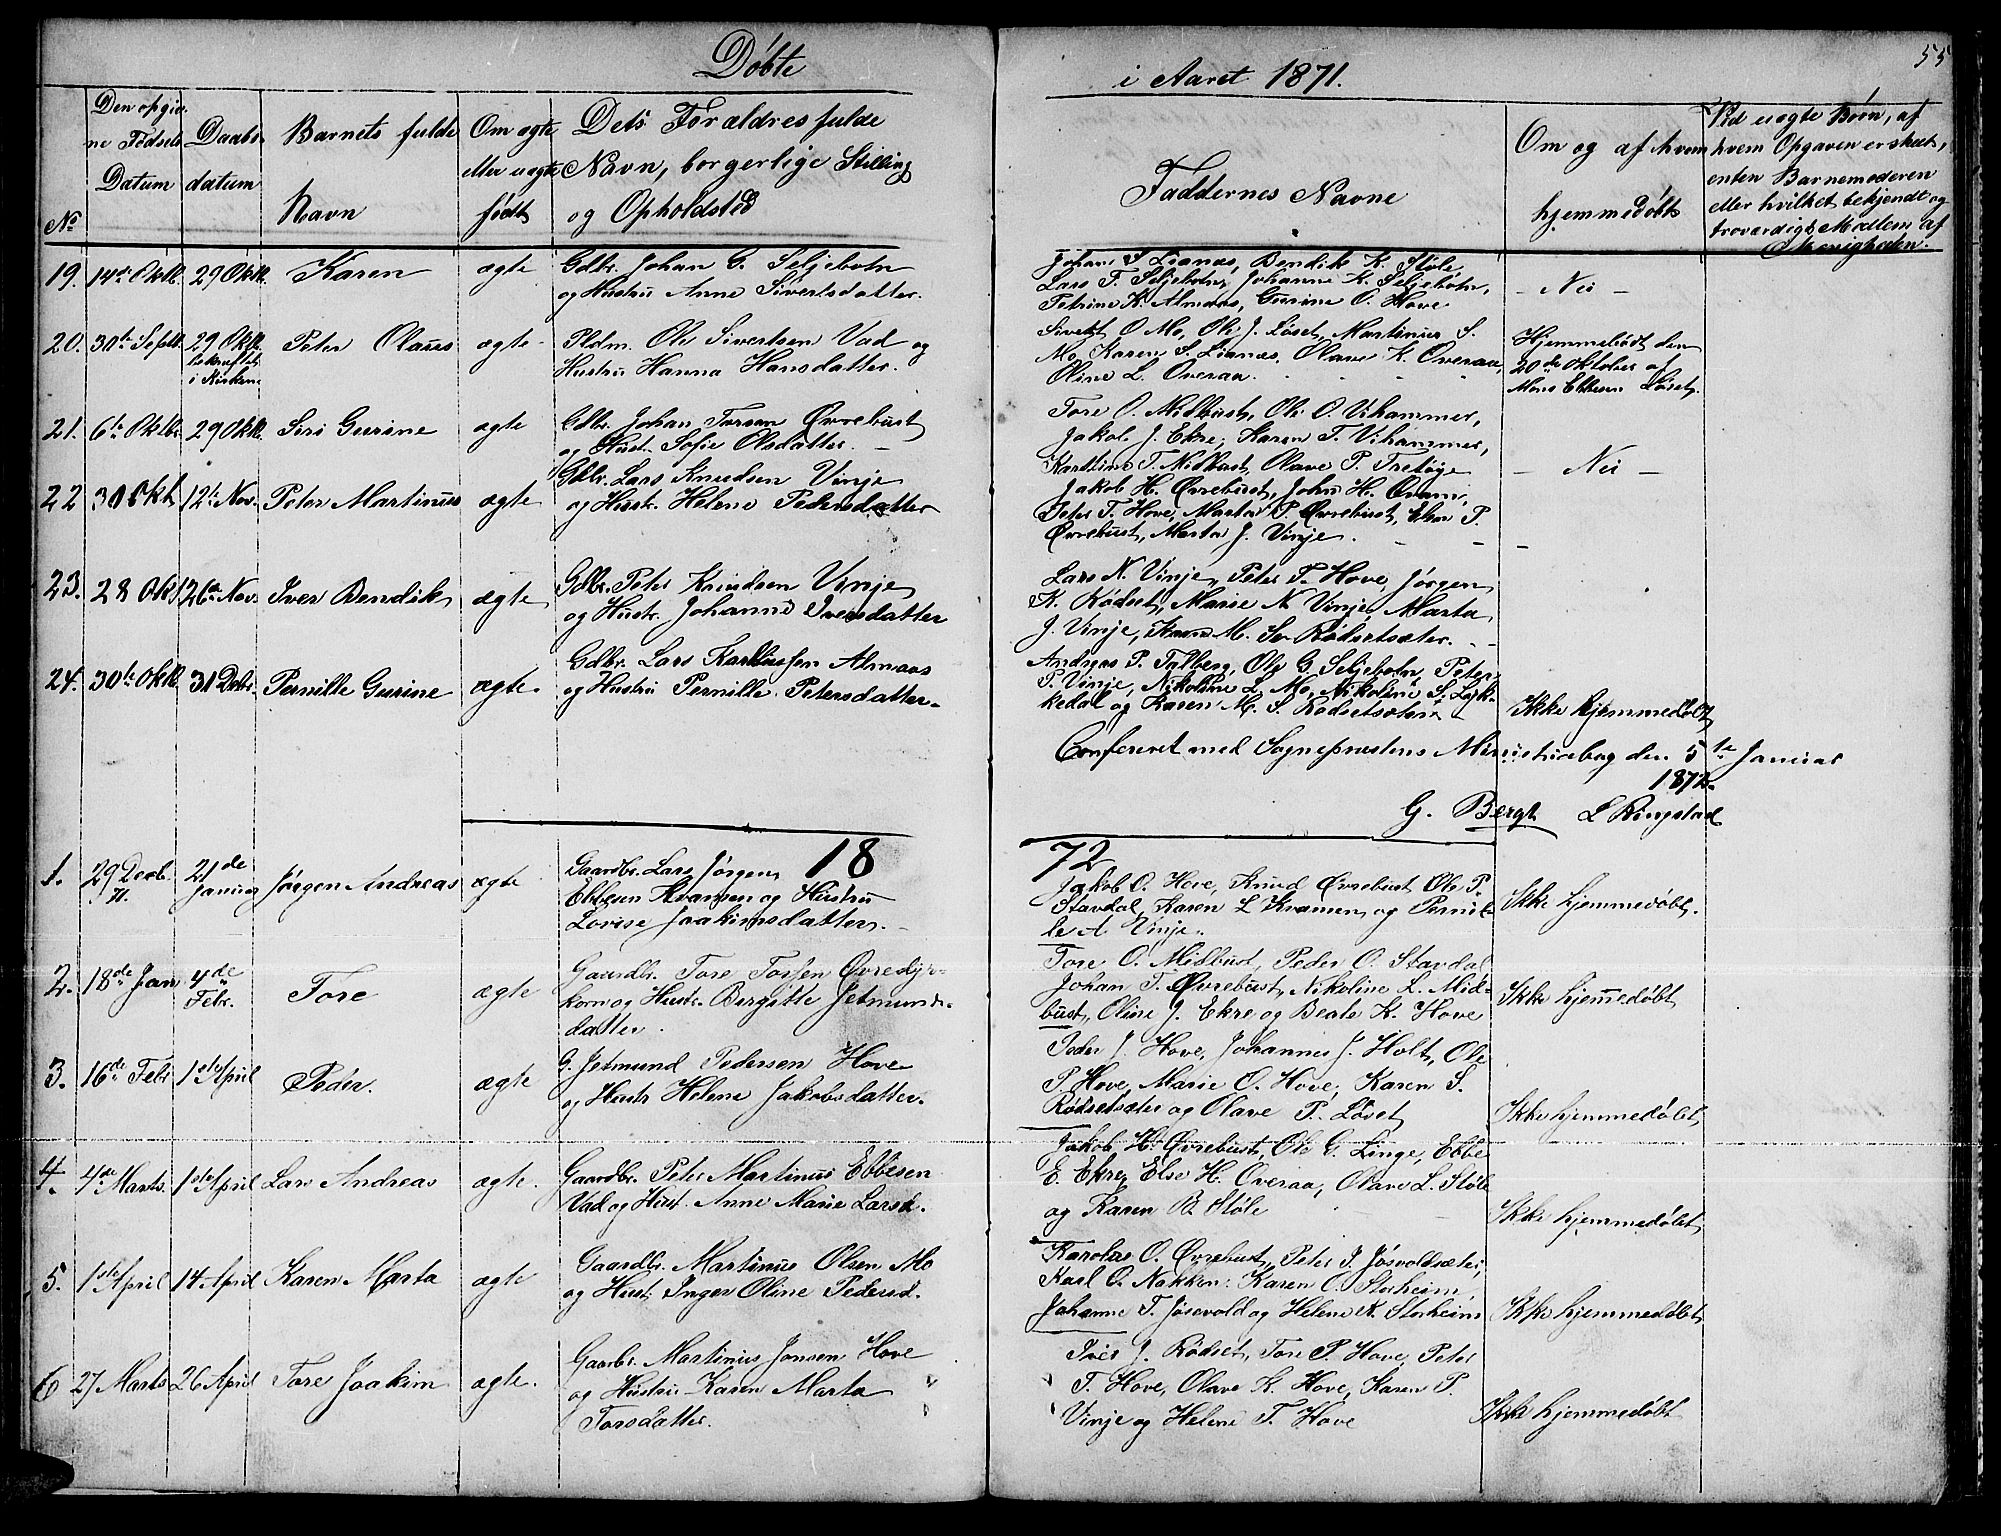 Døbte
i Aaret 1871.
55
No
Den opgiv-
ne Fødsels
Datum
Daabs-
datum
Barnets fulde
Navn
Om ægte
eller uægte
født
Dets Forældres fulde
Navn, borgerlige Stilling
og Opholdsted
Faddernes Navne
Om og af hvem
hjemmedøbt
Ved uægte Børn, af
hvem Opgaven er skeet,
enten Barnemoderen
eller hvilket bekjendt og
troværdigt Medlem af
Menigheden.
19. 14de Oktb. 29 Oktb. Karen ægte
Gdbr. Johan G. Seljebotn
og Hustru Anne Sivertsdatter.
Johan S Lianæs, Bendik K. Støle
Lars T. Seljebotn, Johanne K. Seljebotn,
Petrine K. Almaas, Gurine O. Hove
- Nei -
20. 30te Septb. 29 Oktb.
bekræftet
i Kirken
Peter Olaus ægte
Pldm. Ole Sivertsen Vad og
Hustru Hanna Hansdatter.
Sivert O Mo, Ole J. Løset, Martinus S.
Mo, Karen S. Lianæs, Olave K. Overaa,
Oline L. Overaa.
Hjemmedøbt den
20de Oktober af
Mons Ebbesen Løset.
21. 6te Oktbr. 29 Oktb. Siri Gurine ægte
Gdbr. Johan Torsen Øvrebust
og Hust. Sofie Olsdatter. -
Tore O. Midbust, Ole O. Vihammer,
Jakob J. Ekre, Karen T. Vihammer,
T. Midbust, Olave P.
- Nei -
22 30 Okt. 12te Nov. Peter Martinus ægte
Gdbr. Lars Knudsen Vinje
og Hust. Helene Pedersdatter
Jakob H. Øvrebust, John H.
Peter T. Hove, Marta P. Øvrebust, P.
Øvrebust, Marta J. Vinje.
23. 28 Okt. 26de Nov. Iver Bendik ægte
Gdbr. Peter Knudsen Vinje
og Hustr. Johanne Iversdatter
Lars N. Vinje, Peter T. Hove, Jørgen
K. Rødset, Marie N Vinje, Marta
J. Vinje, Karen M. S. Rødsetsæter.
24. 30te Oktb. 31 Debr. Pernille Gurine ægte.
Gdbr. Lars Almaas
og Hustru Pernille Petersdatter.
Andreas P. Talberg, Ole G. Seljebotn, Peter
P. Vinje, Nikoline L Mo, Nikoline S. Løk-
kedal og Karen M. S. Rødsetsæter.
Ikke hjemmedøbt
Confereret med Sognepræstens Ministriebog den 5te Januar
1872.
G. Bergt L Ringstad
1872
1. 29 Decb.
71.
21de
Januar
Jørgen Andreas ægte
Gaardbr. Lars Jørgen
Ebbesen Kvamen og Hustru
Lovise Joakimsdatter. -
Jakob O. Hove, Knud Øvrebust Ole P.
Stavdal, Karen L Kvamen, og Pernil-
le A Vinje.
Ikke hjemmedøbt.
2. 18de Jan 4de
Febr.
Tore ægte
Gaardbr. Tore Torsen Øvredyr-
korn og Hustr. Bergitte Jetmunds-
datter.
Tore O. Midbust, Peder O. Stavdal
Johan T. Øvrebust, Nikoline L. Mid-
bust, Oline J. Ekre og Beate K. Hove
Ikke hjemmedøbt
3. 16de Febr 1ste April Peder. ægte
G. Jetmund Pedersen Hove
og Hustr Helene Jakobsdatter.
Peder J. Hove, Johannes J. Holt, Ole
P. Hove, Marie O. Hove, Karen S.
Rødsetsæter og Olave P. Løset
Ikke hjemmedøbt
4. 4de Marts. 1ste April Lars Andreas ægte.
Gaardbr. Peter Martinus Ebbesen
Vad og Hust. Anne Marie Larsd.
Jakob H. Øvrebust, Ole G. Linge, Ebbe
E. Ekre, Else H. Overaa, Olave L. Støle
og Karen B. Støle
Ikke hjemmedøbt
5. 1ste April 14 April Karen Marta ægte
Gaardbr. Martinus Olsen Mo
og Hust. Inger Oline Pedersd.
O. Øvrebust, Peter J. Jøsvoldsæter,
Karl O. Nakken, Karen O. Storheim,
Johanne T. Jøsevold og Helene K. Storheim
Ikke hjemmedøbt
6 27 Marts 26 April Tore Joakim ægte.
Gaardbr. Martinus Jonsen Hove
og Hustru Karen Marta
Torsdatter.
Iver J. Rødset, Tore P. Hove, Peter
T. Hove, Olave K. Hove, Karen P.
Vinje og Helene T. Hove
Ikke hjemmedøbt